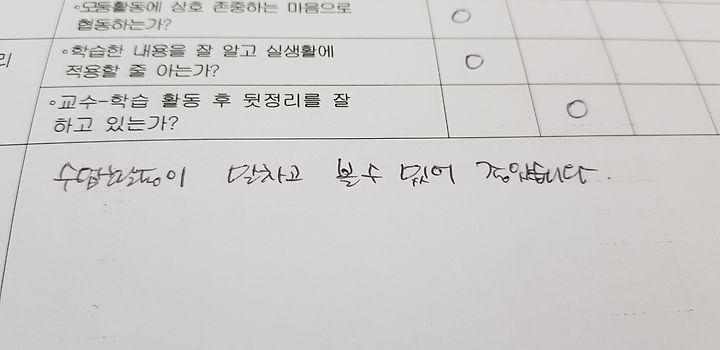 ◦모둠활동에 상호 존중하는 마음으로
협동하는가?
리
◦학습한 내용을 잘 알고 실생활에
적용할 줄 아는가?
◦교수-학습 활동 후 뒷정리를 잘
하고 있는가?
수업활동이 알차고 볼 수 있어 좋았습니다.